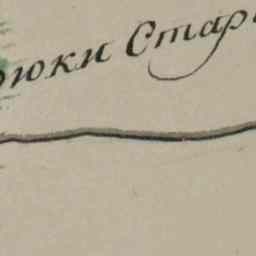 рюки Стар